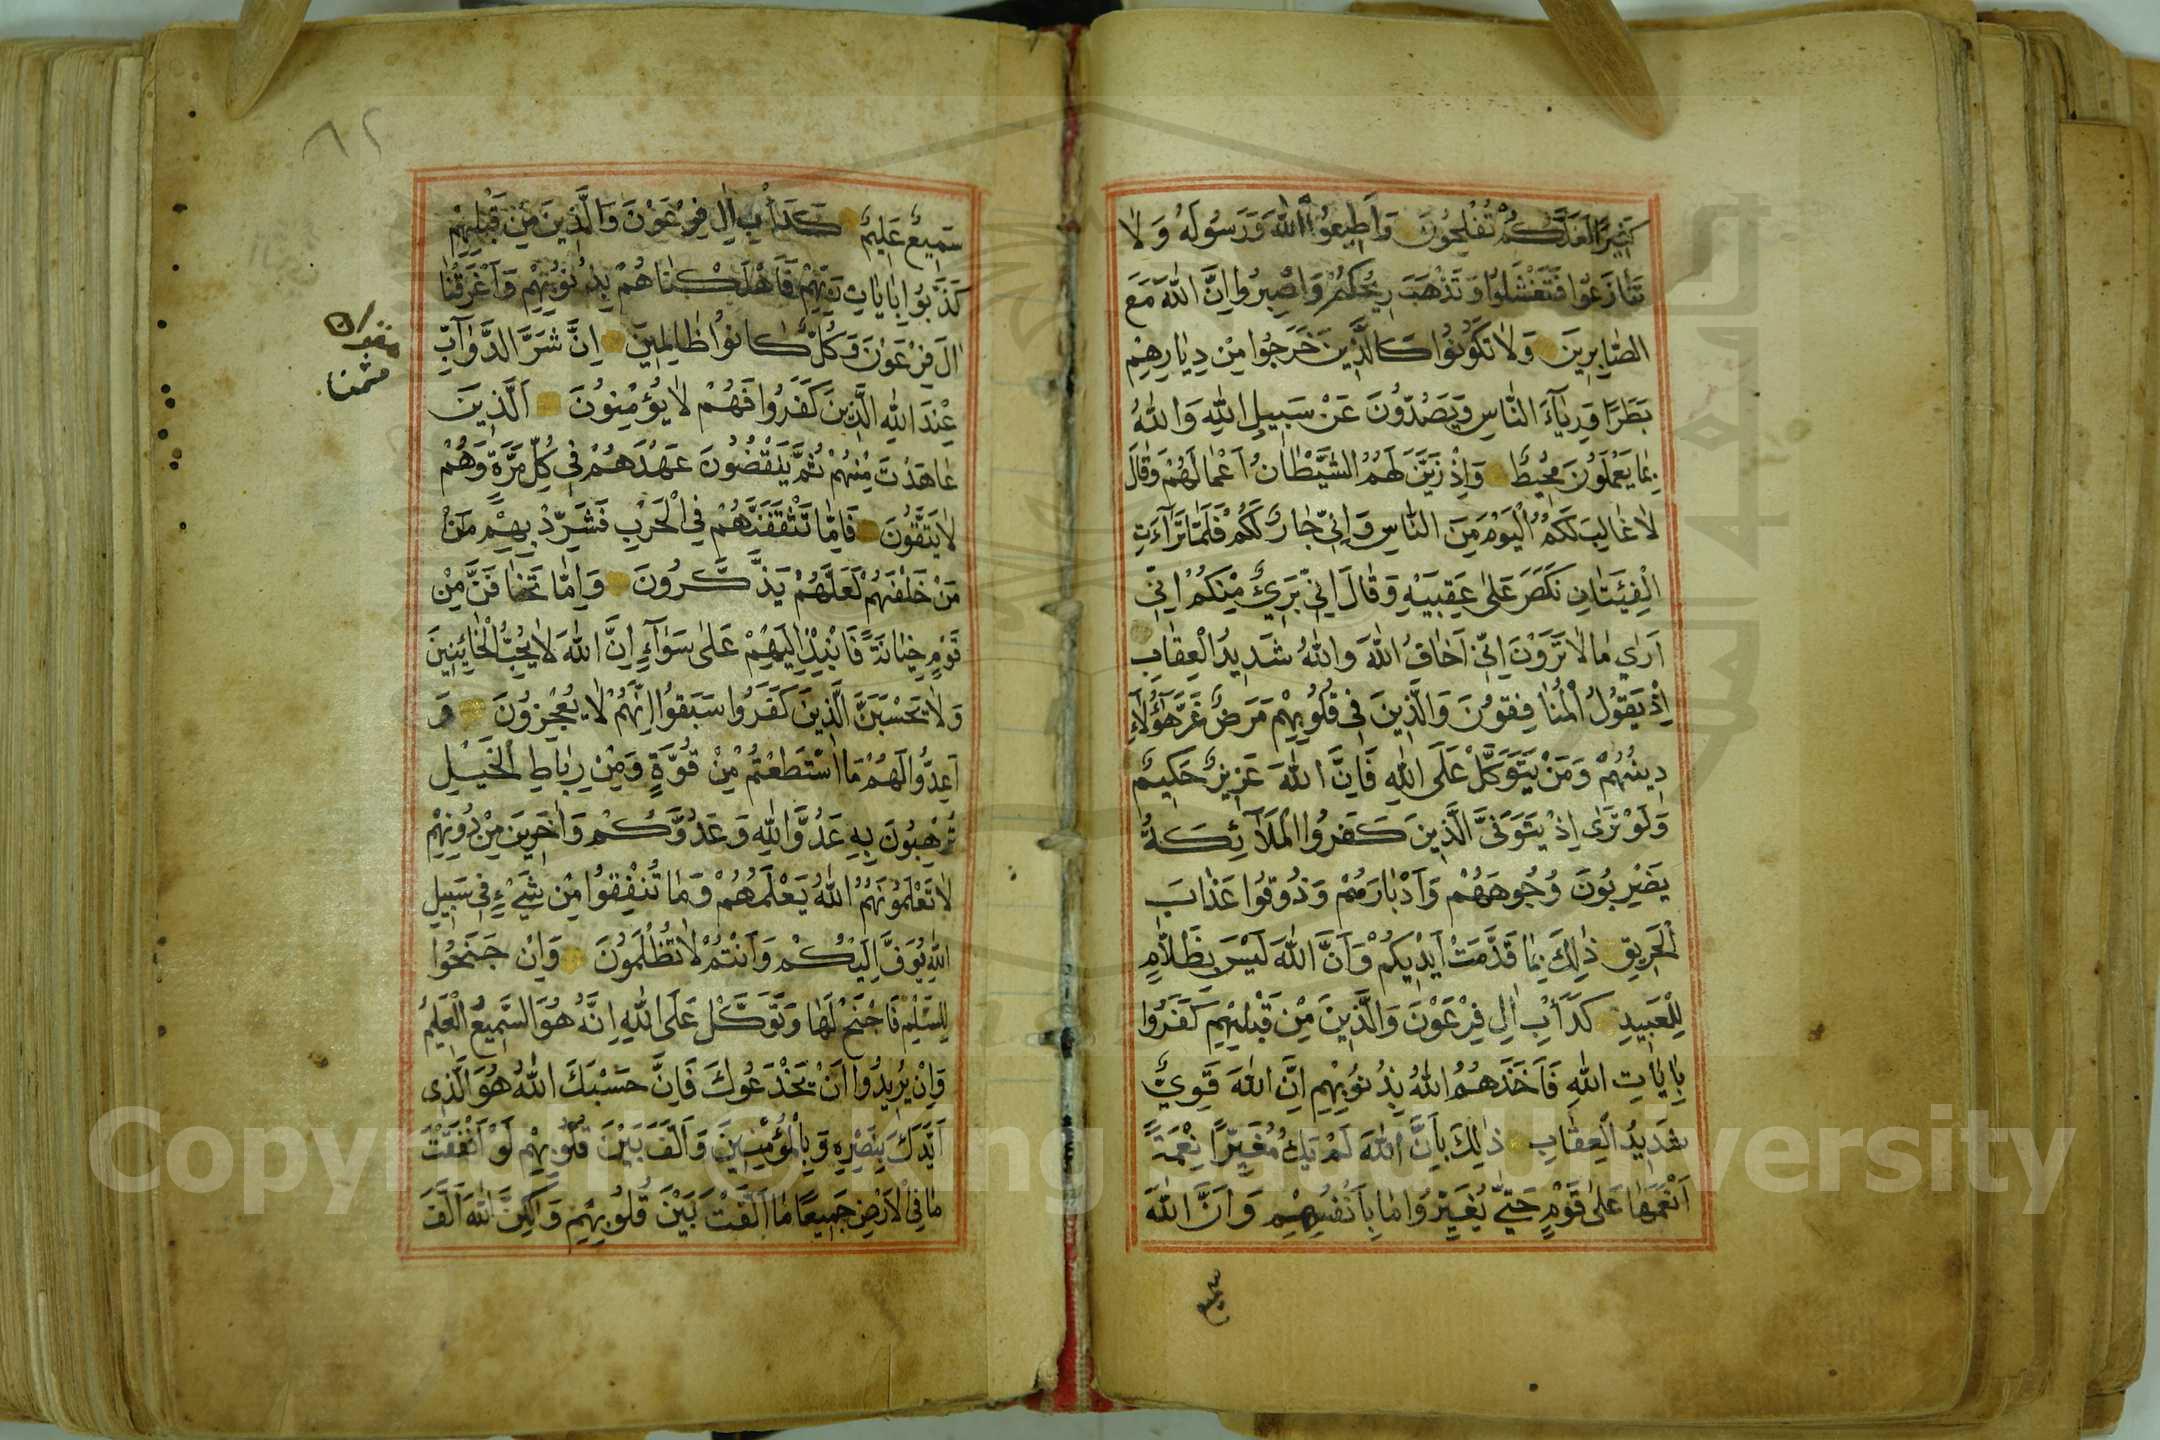 كَثِيرًا لَعَلَّكُمْ تُفْلِحُونَ وَاَطِيعُوا اللّٰهَ وَرَسُولَهُ وَلَا
تَنَازَعُوا فَتَفْشَلُوا وَتَذْهَبَ رِيحُكُمْ وَاصْبِرُوا اِنَّ اللّٰهَ مَعَ
الصَّابِرِينَ وَلَا تَكُونُوا كَالَّذِينَ خَرَجُوا مِنْ دِيَارِهِمْ
بَطَرًا وَرِيَآءَ النَّاسِ وَيَصُدُّونَ عَنْ سَبِيلِ اللّٰهِ وَاللّٰهُ
بِمَا يَعْمَلُونَ مُحِيطٌ وَاِذْ زَيَّنَ لَهُمُ الشَّيْطَانُ اَعْمَالَهُمْ وَقَالَ
لَا غَالِبَ لَكُمُ الْيَوْمَ مِنَ النَّاسِ وَاِنِّي جَارٌ لَكُمْ فَلَمَّا تَرَآءَتِ
الْفِئَتَانِ نَكَصَ عَلَى عَقِبَيْهِ وَقَالَ اِنِّي بَرِئٌ مِنْكُمْ اِنِّي
اَرَى مَا لَا تَرَوْنَ اِنِّي اَخَافُ اللّٰهَ وَاللّٰهُ شَدِيدُ الْعِقَابِ
اِذْ يَقُولُ الْمُنَافِقُونَ وَالَّذِينَ فِي قُلُوبِهِمْ مَرَضٌ غَرَّ هٰٓؤُلَآءِ
دِينُهُمْ وَمَنْ يَتَوَكَّلْ عَلَى اللّٰهِ فَاِنَّ اللّٰهَ عَزِيزٌ حَكِيمٌ
وَلَوْ تَرَى اِذْ يَتَوَفَّى الَّذِينَ كَفَرُوا الْمَلَآئِكَةُ
يَضْرِبُونَ وُجُوهَهُمْ وَاَدْبَارَهُمْ وَذُوقُوا عَذَابَ
الْحَرِيقِ ذٰلِكَ بِمَا قَدَّمَتْ اَيْدِيكُمْ وَاَنَّ اللّٰهَ لَيْسَ بِظَلَّامٍ
لِلْعَبِيدِ كَدَأْبِ اٰلِ فِرْعَوْنَ وَالَّذِينَ مِنْ قَبْلِهِمْ كَفَرُوا
بِاٰيَاتِ اللّٰهِ فَاَخَذَهُمُ اللّٰهُ بِذُنُوبِهِمْ اِنَّ اللّٰهَ قَوِيٌّ
شَدِيدُ الْعِقَابِ ذٰلِكَ بِاَنَّ اللّٰهَ لَمْ يَكُ مُغَيِّرًا نِعْمَةً
اَنْعَمَهَا عَلَى قَوْمٍ حَتَّى يُغَيِّرُوا مَا بِاَنْفُسِهِمْ وَاَنَّ اللّٰهَ
سميع
٨٢
سَمِيعٌ عَلِيمٌ كَدَأْبِ اٰلِ فِرْعَوْنَ وَالَّذِينَ مِنْ قَبْلِهِمْ
كَذَّبُوا بِاٰيَاتِ رَبِّهِمْ فَاَهْلَكْنَاهُمْ بِذُنُوبِهِمْ وَاَغْرَقْنَا
اٰلَ فِرْعَوْنَ وَكُلٌّ كَانُوا ظَالِمِينَ اِنَّ شَرَّ الدَّوَآبِّ
عِنْدَ اللّٰهِ الَّذِينَ كَفَرُوا فَهُمْ لَا يُؤْمِنُونَ اَلَّذِينَ
عَاهَدْتَ مِنْهُمْ ثُمَّ يَنْقُضُونَ عَهْدَهُمْ فِي كُلِّ مَرَّةٍ وَهُمْ
لَا يَتَّقُونَ فَاِمَّا تَثْقَفَنَّهُمْ فِي الْحَرْبِ فَشَرِّدْ بِهِمْ مَنْ
مَنْ خَلْفَهُمْ لَعَلَّهُمْ يَذَّكَّرُونَ وَاِمَّا تَخَافَنَّ مِنْ
قَوْمٍ خِيَانَةً فَانْبِذْ اِلَيْهِمْ عَلَى سَوَآءٍ اِنَّ اللّٰهَ لَا يُحِبُّ الْخَائِنِينَ
وَلَا تَحْسَبَنَّ الَّذِينَ كَفَرُوا سَبَقُوا اِنَّهُمْ لَا يُعْجِزُونَ وَ
اَعِدُّوا لَهُمْ مَا اسْتَطَعْتُمْ مِنْ قُوَّةٍ وَمِنْ رِبَاطِ الْخَيْلِ
تُرْهِبُونَ بِهِ عَدُوَّ اللّٰهِ وَعَدُوَّكُمْ وَاٰخَرِينَ مِنْ دُونِهِمْ
لَا تَعْلَمُونَهُمُ اللّٰهُ يَعْلَمُهُمْ وَمَا تُنْفِقُوا مِنْ شَيْءٍ فِي سَبِيلِ
اللّٰهِ يُوَفَّ اِلَيْكُمْ وَاَنْتُمْ لَا تُظْلَمُونَ وَاِنْ جَنَحُوا
لِلسَّلْمِ فَاجْنَحْ لَهَا وَتَوَكَّلْ عَلَى اللّٰهِ اِنَّهُ هُوَ السَّمِيعُ الْعَلِيمُ
وَاِنْ يُرِيدُوا اَنْ يَخْدَعُوكَ فَاِنَّ حَسْبَكَ اللّٰهُ هُوَ الَّذِي
اَيَّدَكَ بِنَصْرِهِ وَبِالْمُؤْمِنِينَ وَاَلَّفَ بَيْنَ قُلُوبِهِمْ لَوْ اَنْفَقْتَ
مَا فِي الْاَرْضِ جَمِيعًا مَا اَلَّفْتَ بَيْنَ قُلُوبِهِمْ وَلٰكِنَّ اللّٰهَ اَلَّفَ
Copyright © King Saud University